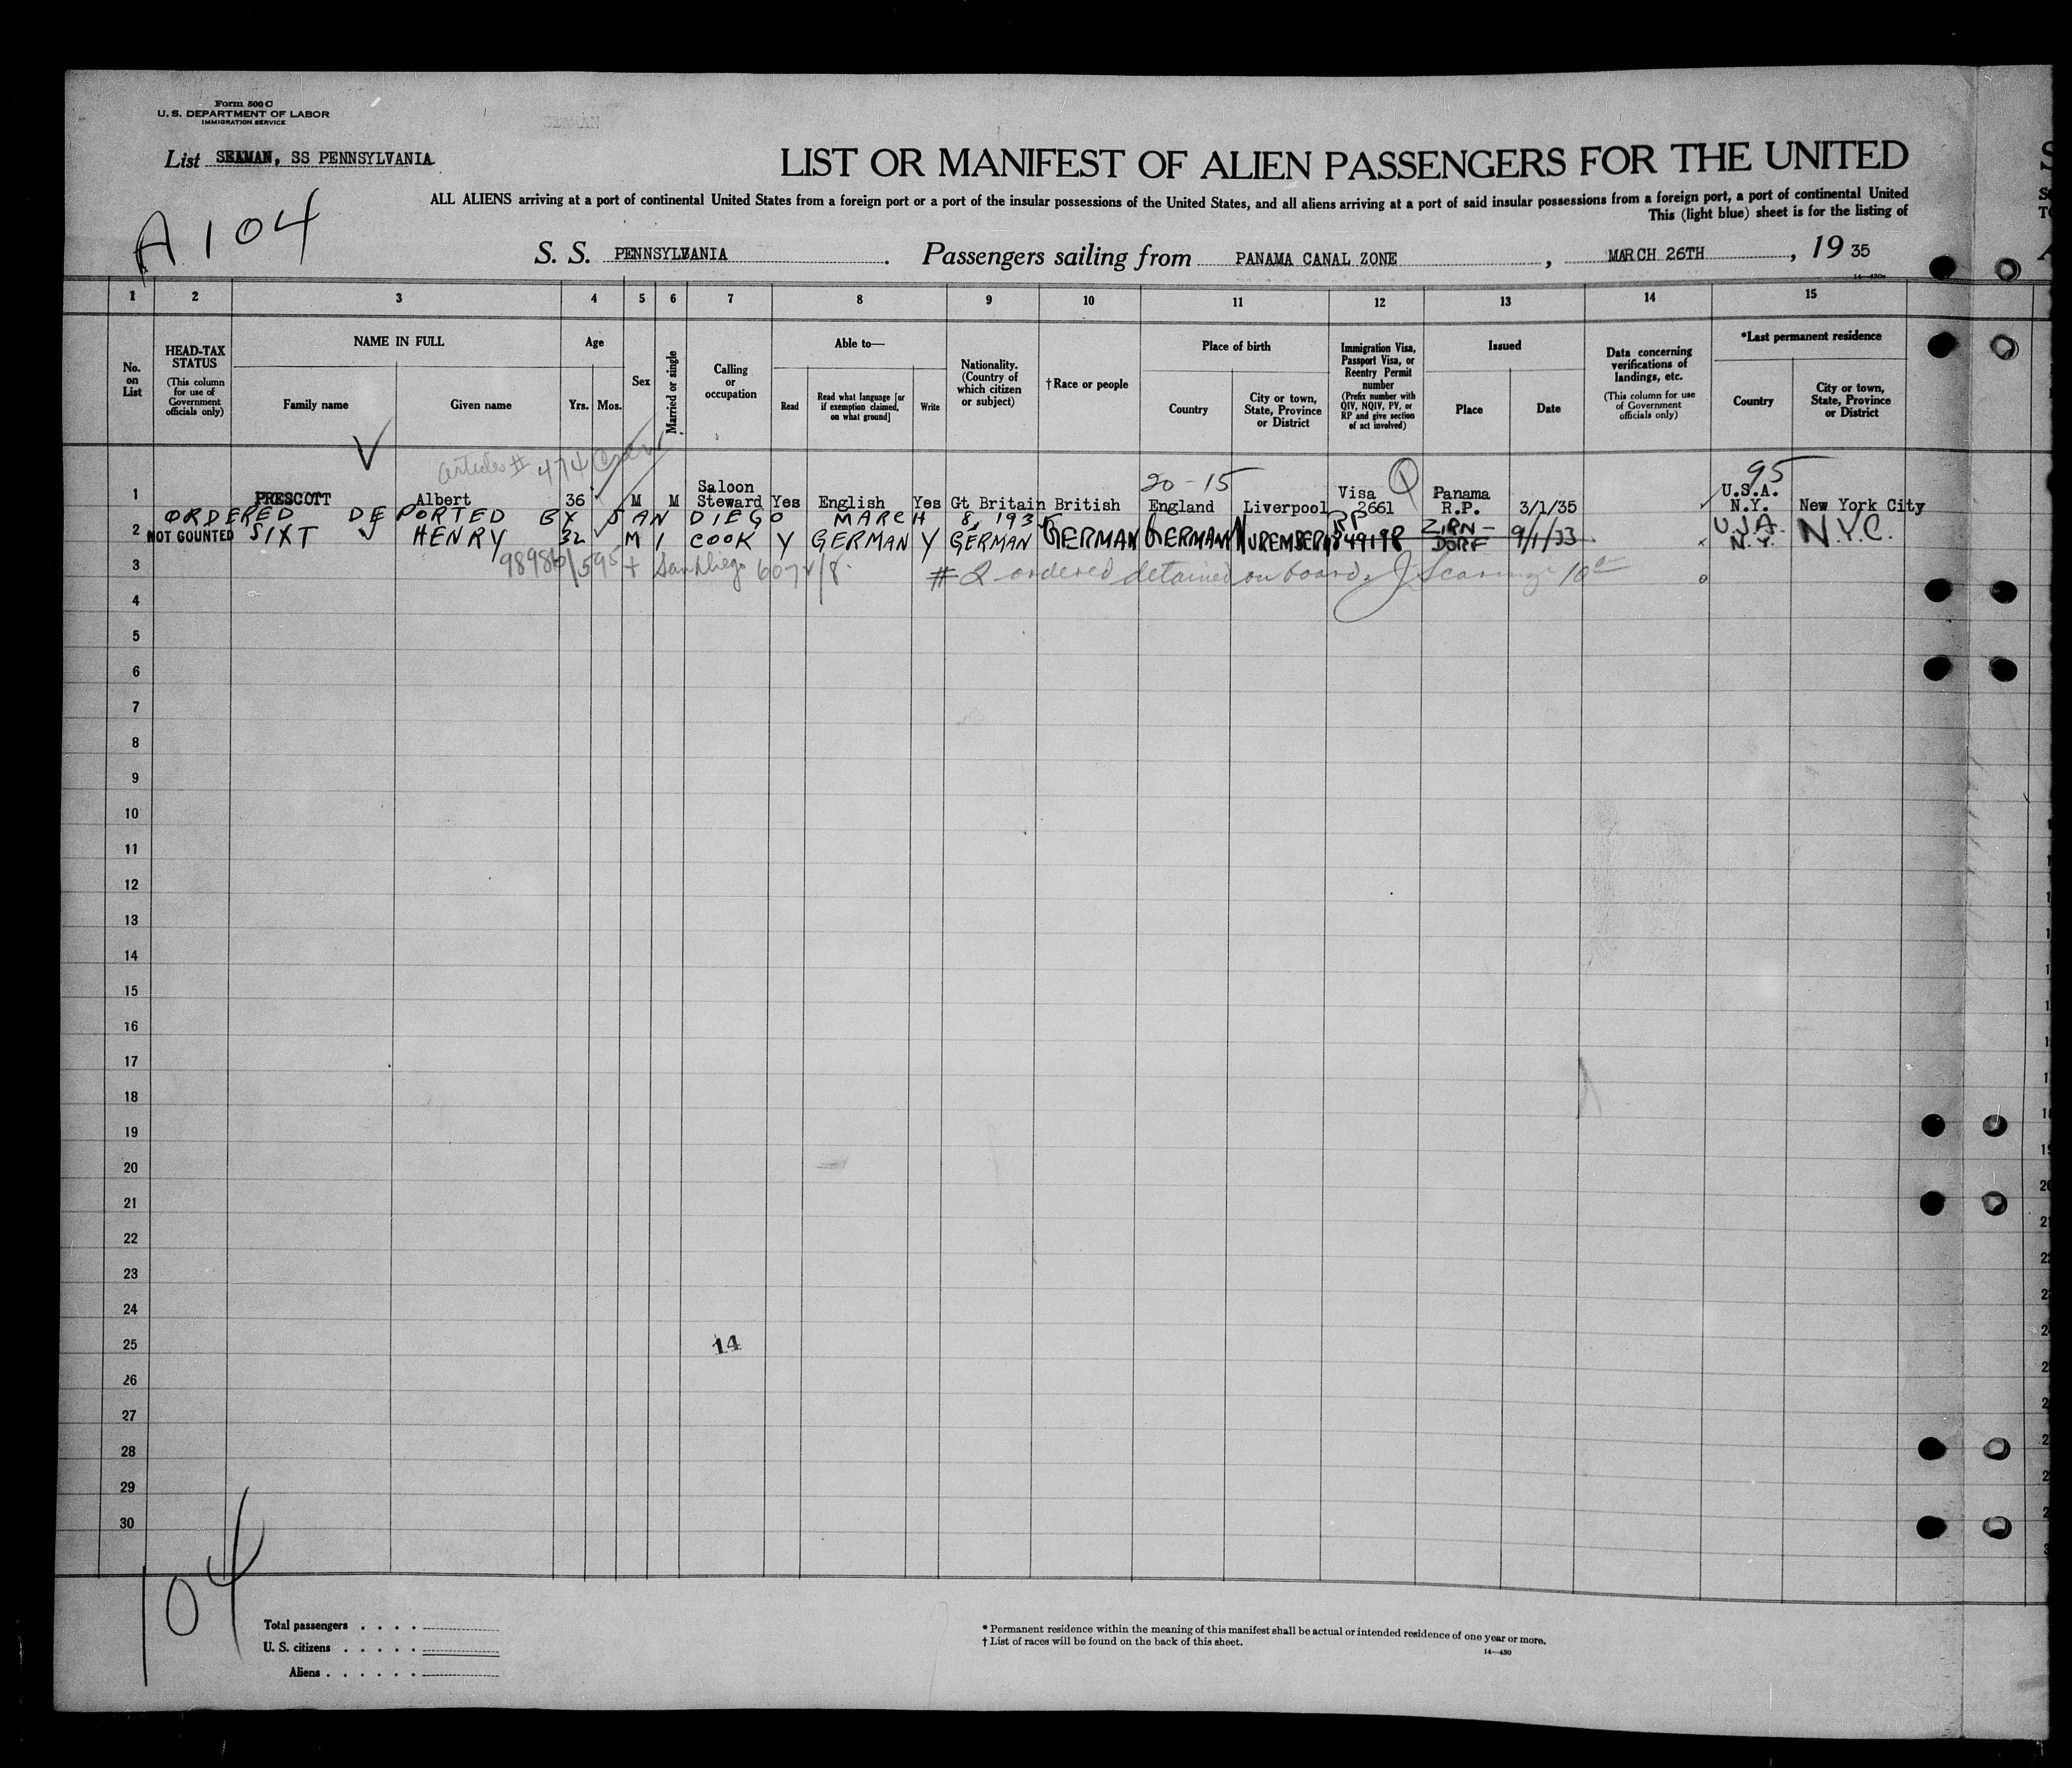 Form 500 C
U. S. DEPARTMENT OF LABOR
IMMIGRATION SERVICE
List SEAMAN, SS PENNSYLVANIA
LIST OR MANIFEST OF ALIEN PASSENGERS FOR THE UNITED
ALL ALIENS arriving at a port of continental United States from a foreign port or a port of the insular possessions of the United States, and all aliens arriving at a port of said insular possessions from a foreign port, a port of continental United
This (light blue) sheet is for the listing of
A 104
S. S. PENNSYLVANIA. Passengers sailing from PANAMA CANAL ZONE, MARCH 26TH, 19 35
1 2 3 4 5 6 7 8 9 10 11 12 13 14 15
No. on List
HEAD-TAX STATUS (This column for use of Government officials only)
NAME IN FULL
Family name Given name
Age
Yrs. Mos.
Sex
Married or single
Calling or occupation
Able to—
Read Read what language [or if exemption claimed, on what ground] Write
Nationality. (Country of which citizen or subject)
†Race or people
Place of birth
Country City or town, State, Province or District
Immigration Visa, Passport Visa, or Reentry Permit number (Prefix number with QIV, NQIV, PV, or RP and give section of act involved)
Issued
Place Date
Data concerning verifications of landings, etc. (This column for use of Government officials only)
*Last permanent residence
Country City or town, State, Province or District
Articles # 474
20-15 Q 95
1 PRESCOTT Albert 36 M M Saloon Steward Yes English Yes Gt Britain British England Liverpool Visa 2661 Panama R.P. 3/1/35 U.S.A. N.Y. New York City
ORDERED DEPORTED BY SAN DIEGO MARCH 8, 1935
2 NOT COUNTED SIXT HENRY 32 M COOK Y GERMAN Y GERMAN GERMAN GERMAN NUREMBERG RP 849198 ZIRN-DORF 9/1/33 U.S.A. N.Y. N.Y.C.
98986/595 + San Diego 6074/8.
3 #2 ordered detained on board.
4
5
6
7
8
9
10
11
12
13
14
15
16
17
18
19
20
21
22
23
24
25 14
26
27
28
29
30
104
Total passengers
U. S. citizens
Aliens
* Permanent residence within the meaning of this manifest shall be actual or intended residence of one year or more.
† List of races will be found on the back of this sheet.
14—430